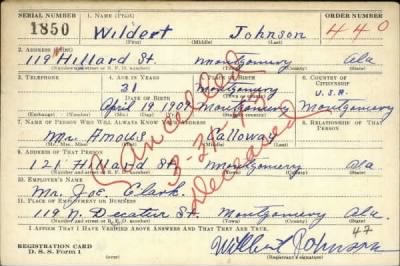 SERIAL NUMBER 1. NAME (Print) ORDER NUMBER
1850 Wildert Johnson 440
(First) (Middle) (Last)
2. ADDRESS (Print)
119 Hillard St. Montgomery Ala
(Number and street or R. F. D. number) (Town) (County) (State)
3. TELEPHONE 4. AGE IN YEARS 5. PLACE OF BIRTH 6. COUNTRY OF CITIZENSHIP
31 Montgomery U.S.A.
DATE OF BIRTH
April 19 1909 Montgomery Montgomery
(Exchange) (Number) (Mo.) (Day) (Yr.)
7. NAME OF PERSON WHO WILL ALWAYS KNOW YOUR ADDRESS 8. RELATIONSHIP OF THAT PERSON
Mr. Calloway
(Mr., Mrs., Miss) (First) (Middle) (Last)
9. ADDRESS OF THAT PERSON
121 Hillard St. Montgomery Ala
(Number and street or R. F. D. number) (Town) (County) (State)
10. EMPLOYER'S NAME
Mr. Joe Clark.
11. PLACE OF EMPLOYMENT OR BUSINESS
119 N. Decatur St. Montgomery Ala.
(Number and street or R. F. D. number) (Town) (County) (State)
I AFFIRM THAT I HAVE VERIFIED ABOVE ANSWERS AND THAT THEY ARE TRUE.
REGISTRATION CARD
D. S. S. Form 1
Wilbert Johnson 47
(Registrant's signature)
Cancelled
Deceased